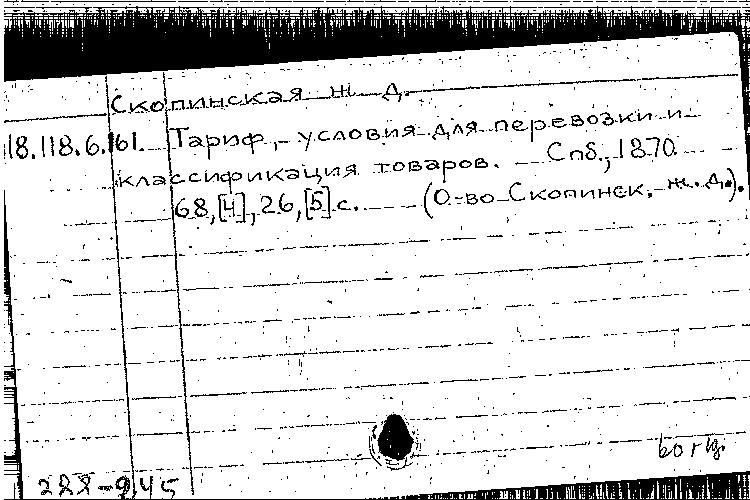 Скопинская ж. д.
18.118.6.161. Тариф, условия для перевозки и
классификация товаров. Спб., 1870.
68,[4],26,[5] с. (О-во Скопинск. ж. д.).
288-9,45